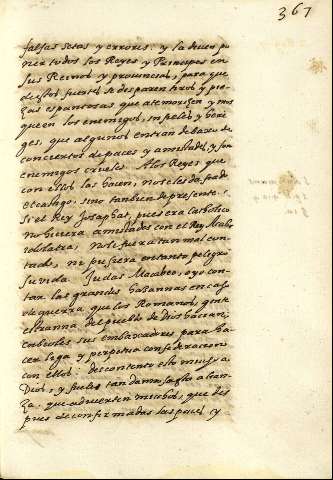 367
falsas setas y errores: y la deuen po
ner todos los Reyes y Principes en
sus Reinos y prouincias, para que
destos fuertes se desparen tiros y pie
zas espantosas, que atemorisen y
que en los enemigos, infieles y here
ges, que algunos entran debaxo de
conciertos de paces y amistades, y son
enemigos crueles. A los Reyes, que
con ellos las hacen, no solo es dañado
el catalogo, sino tambien de presente.
Si el Rey Josaphat, pues era catholico
no hiciera amistades con el Rey Acab
ydolatra; no le fuera tan mal con
tado, ni pusiera en tanto peligro
su vida. Judas Macabeo, oyo con
tar las grandes hazannas en casos
de guerra, que los Romanos, gente
estranna del pueblo de Dios hacian;
embioles sus embaxadores para ha
cer lega y perpetua confederacion
con ellos: descontento esto mucho a
Dios, y fueles tan damnosa esta alian
za, que aduierten muchos, que des
pues de confirmadas las paces, y